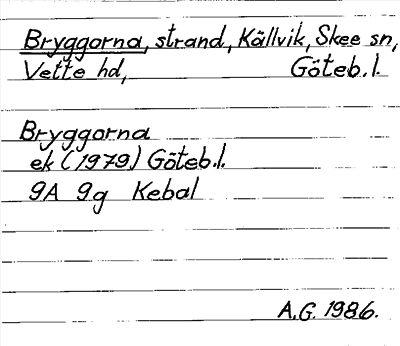 Bryggorna, strand, Källvik, Skee sn,
Vette hd, Göteb.l.
Bryggorna
ek (1979) Göteb.l.
9A 9g Kebal
A.G. 1986.